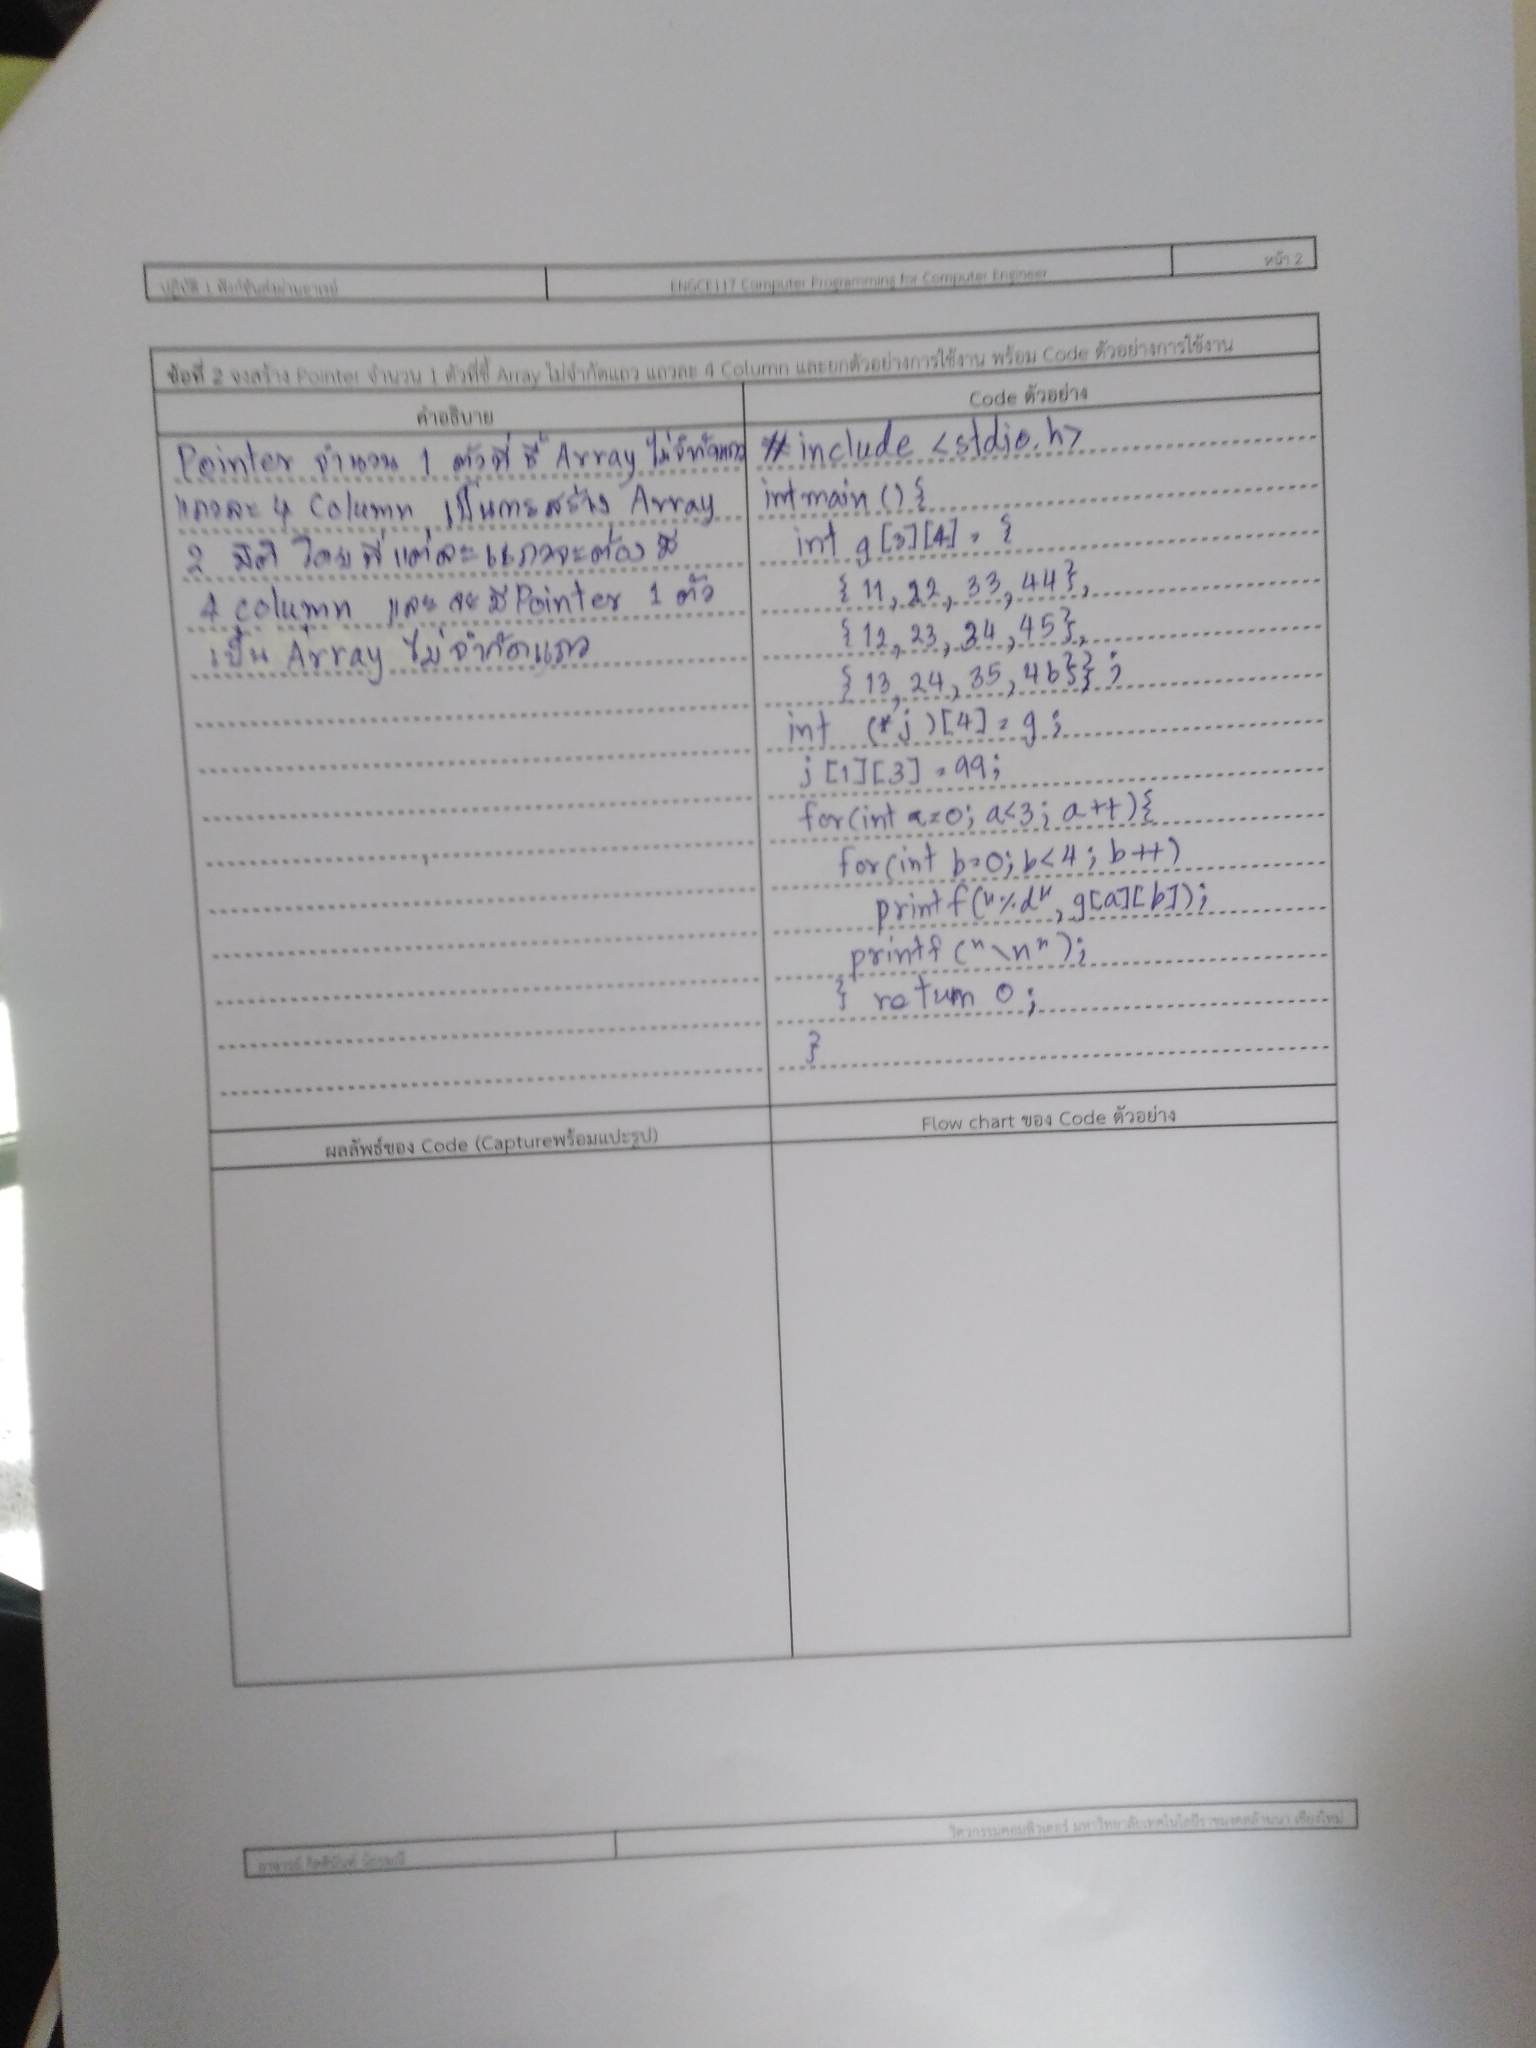 ปฏิบัติ 1 ฟังก์ชันส่งผ่านอาเรย์
ENGCE117 Computer Programming for Computer Engineer
หน้า 2
ข้อที่ 2 จงสร้าง Pointer จำนวน 1 ตัวที่ชี้ Array ไม่จำกัดแถว แถวละ 4 Column และยกตัวอย่างการใช้งาน พร้อม Code ตัวอย่างการใช้งาน
คำอธิบาย
Pointer จำนวน 1 ตัวที่ ชี้ Array ไม่จำกัดแถว
แถวละ 4 Column เป็นการสร้าง Array
2 มิติ โดยที่แต่ละแถวจะต้อง มี
4 column และจะมี Pointer 1 ตัว
เป็น Array ไม่จำกัดแถว
Code ตัวอย่าง
#include <stdio.h>
int main () {
int g[3][4] = {
{ 11, 22, 33, 44},
{12, 23, 34, 45},
{ 13, 24, 35, 46}} ;
int (*j)[4] = g ;
j [1][3] = 99;
for(int a=0; a<3; a++){
for(int b=0; b<4; b++)
printf("%d", g[a][b]);
printf ("\n");
} return 0 ;
}
ผลลัพธ์ของ Code (Captureพร้อมแปะรูป)
Flow chart ของ Code ตัวอย่าง
อาจารย์
วิศวกรรมคอมพิวเตอร์ มหาวิทยาลัยเทคโนโลยีราชมงคลล้านนา เชียงใหม่